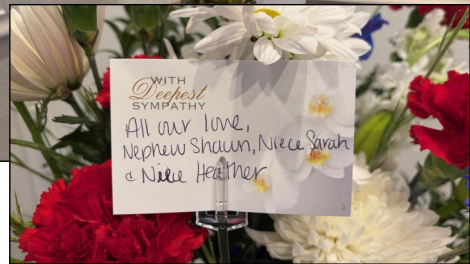 WITH
Deepest
SYMPATHY
All our love,
Nephew Shawn, Niece Sarah
& Niece Heather